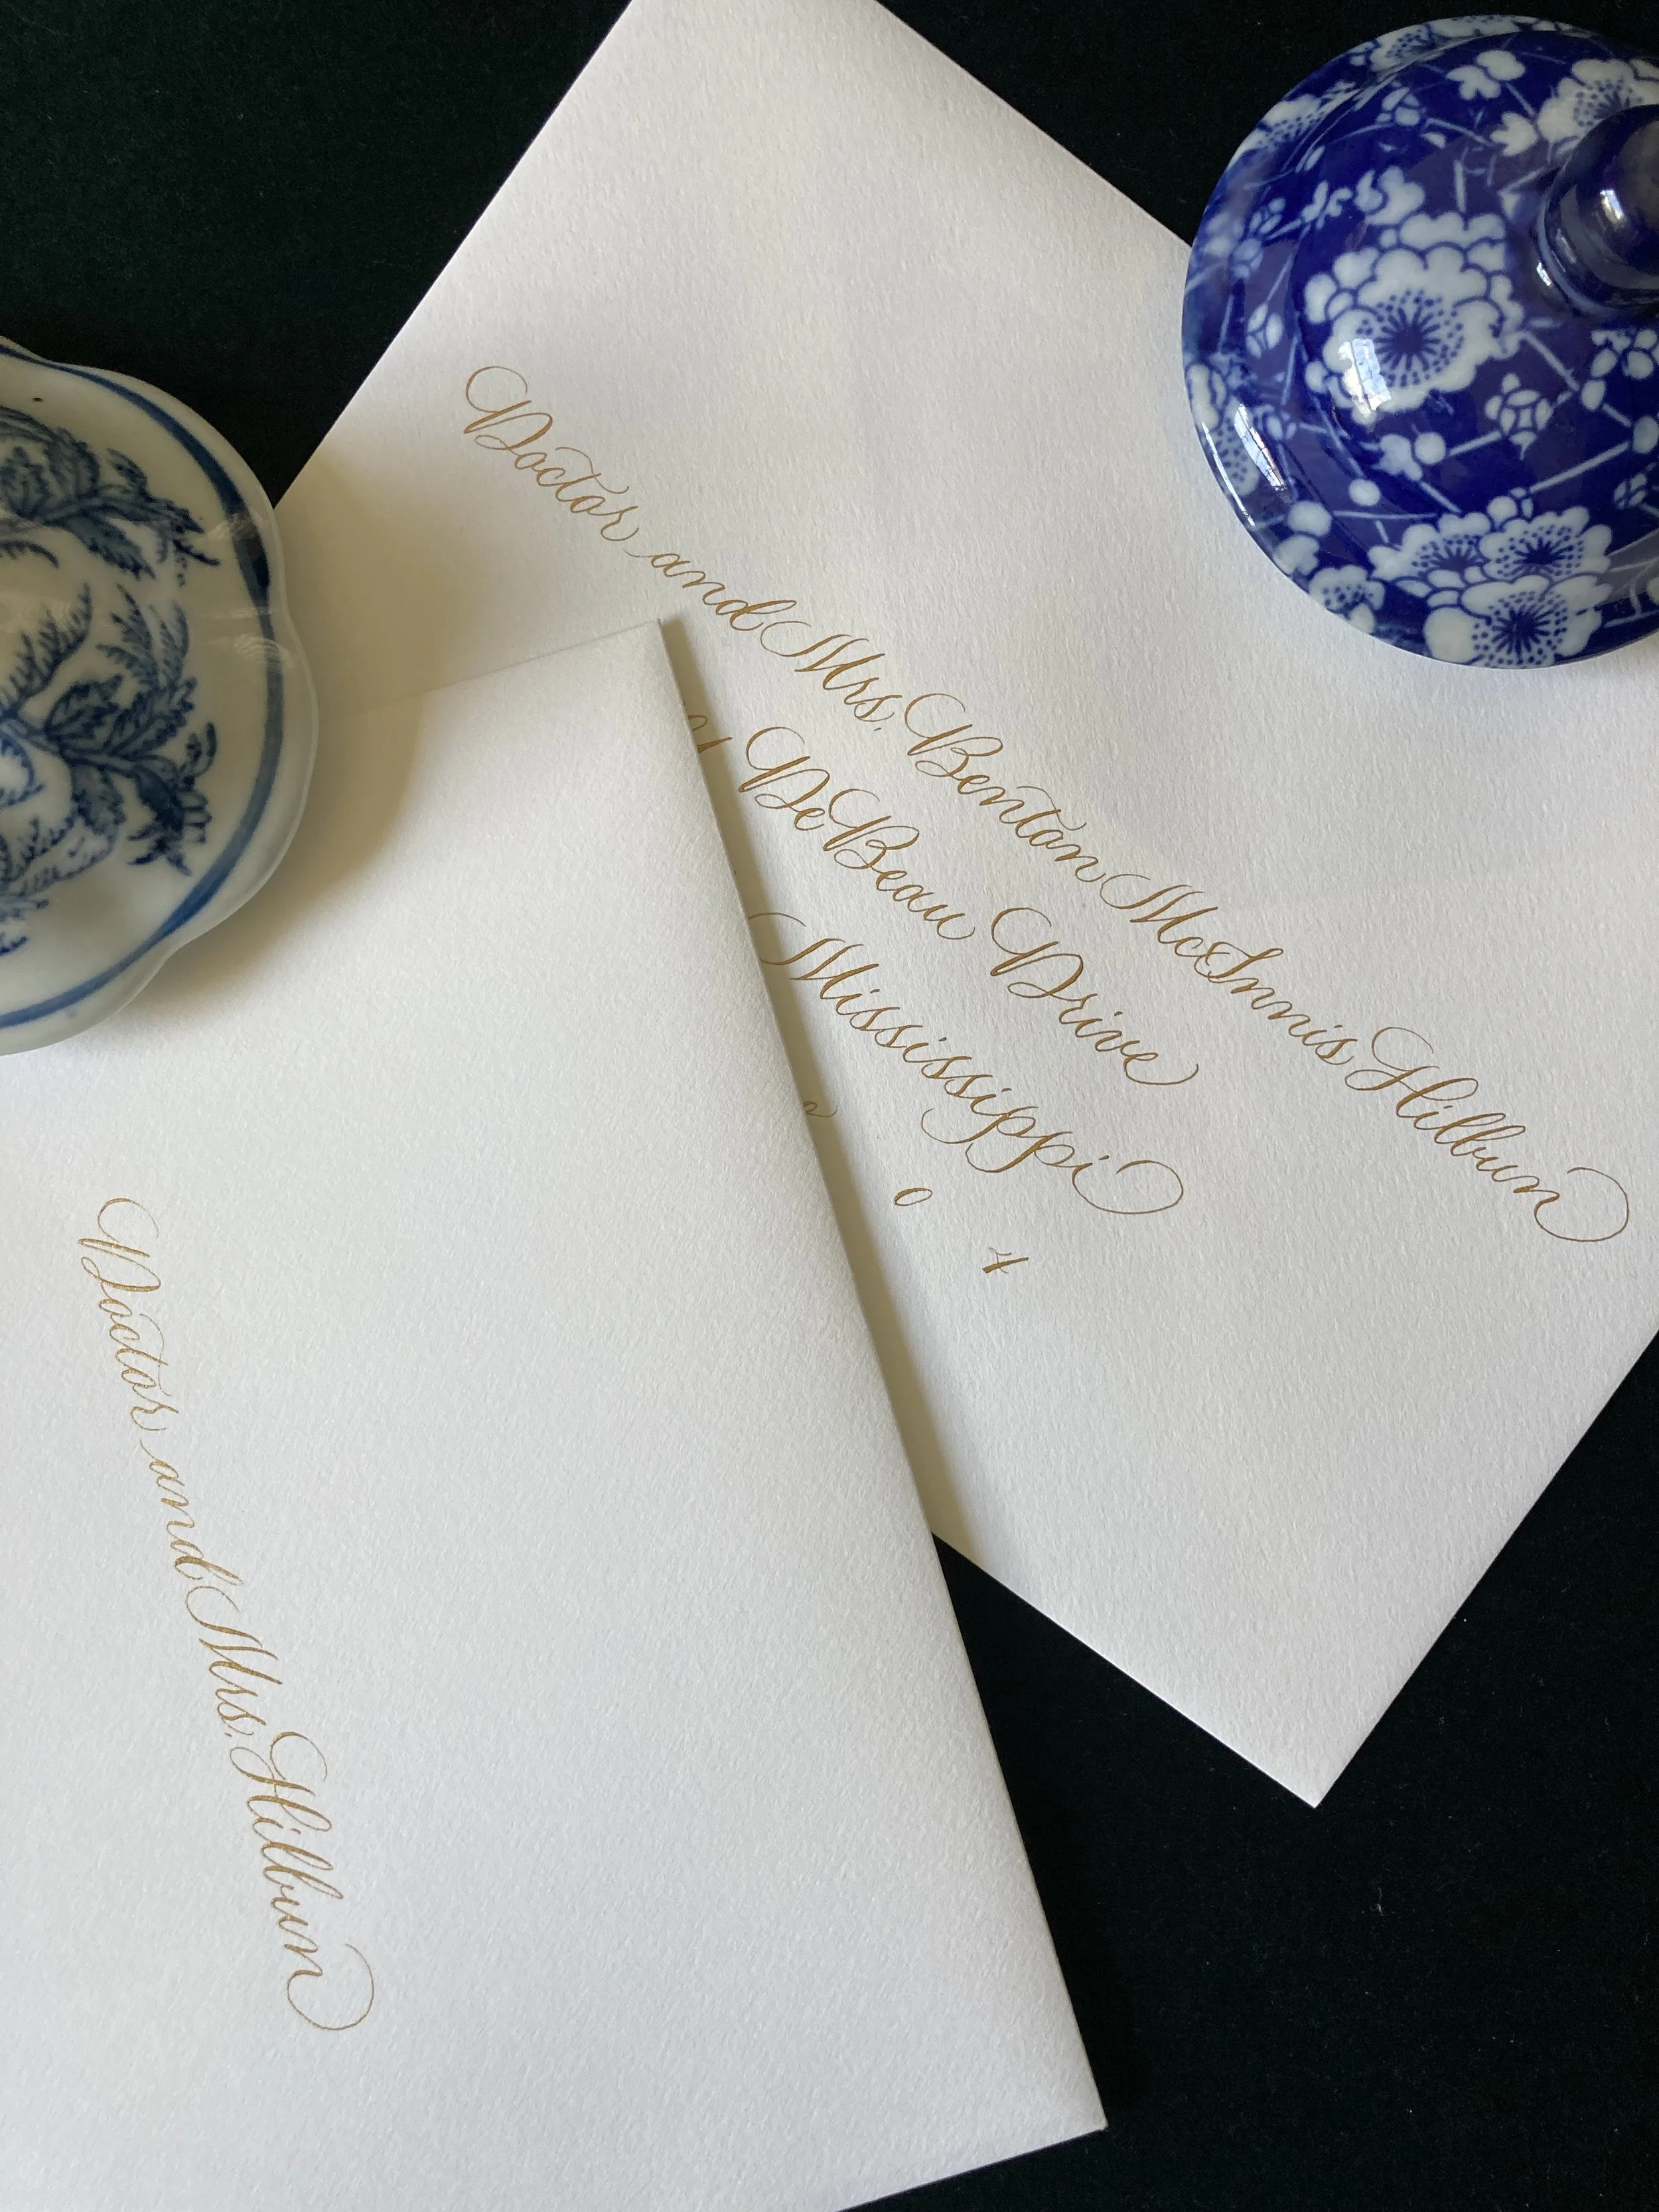 Doctor and Mrs. Benton McInnis Hilbun
DeBeau Drive
Mississippi
0 4
Doctor and Mrs. Hilbun